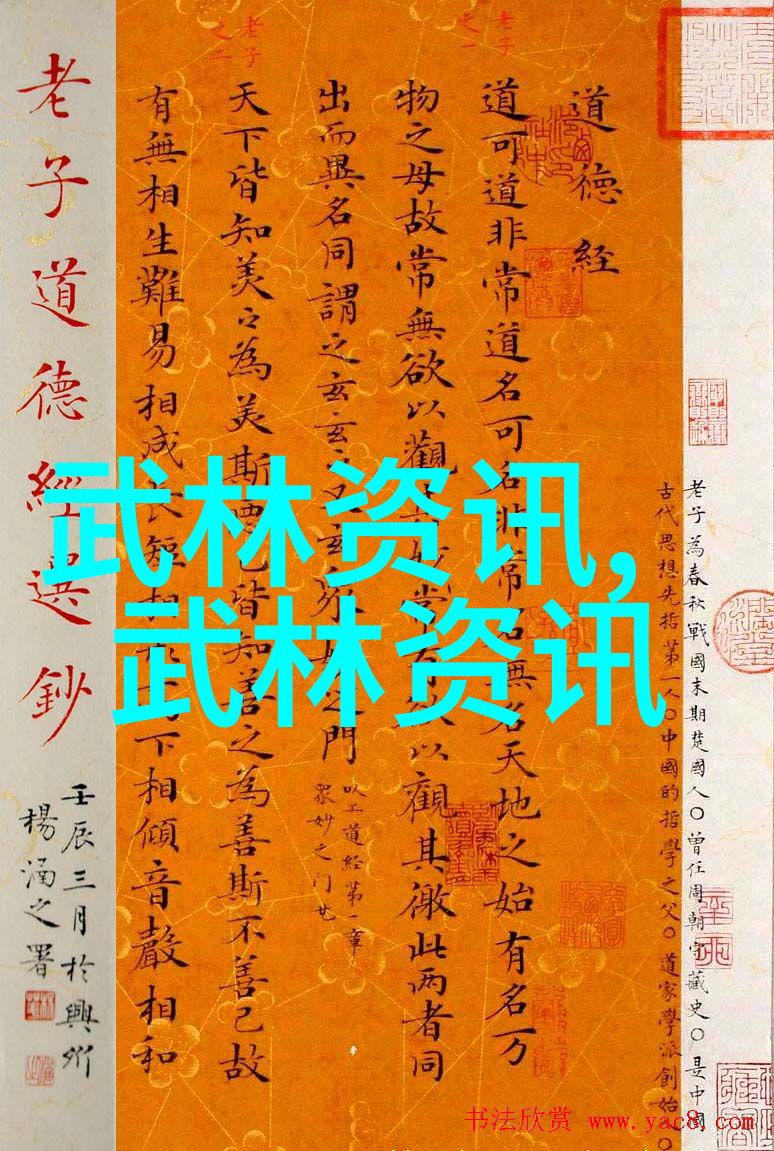 老子為春秋戰國末期楚國人〇曾任周朝守藏史〇是中國
古代思想先指第一人〇中國的哲學之父〇道家學派創始〇
道德经
老子之一
道可道非常道名可名非常名無名天地之始有名万
物之母故常無欲以觀其妙常有欲以觀其徼此两者同
出而異名同謂之玄玄之又玄眾妙之門
以上道经第一章
眾妙之门
老子之二
天下皆知美之為美斯惡已皆知善之為善斯不善已故
有無相生難易相成長短相形高下相傾音聲相和
老子道德經選鈔
壬辰三月於興
楊涵之署
武林资讯,
武林资讯
书法欣赏 www.yac8.com